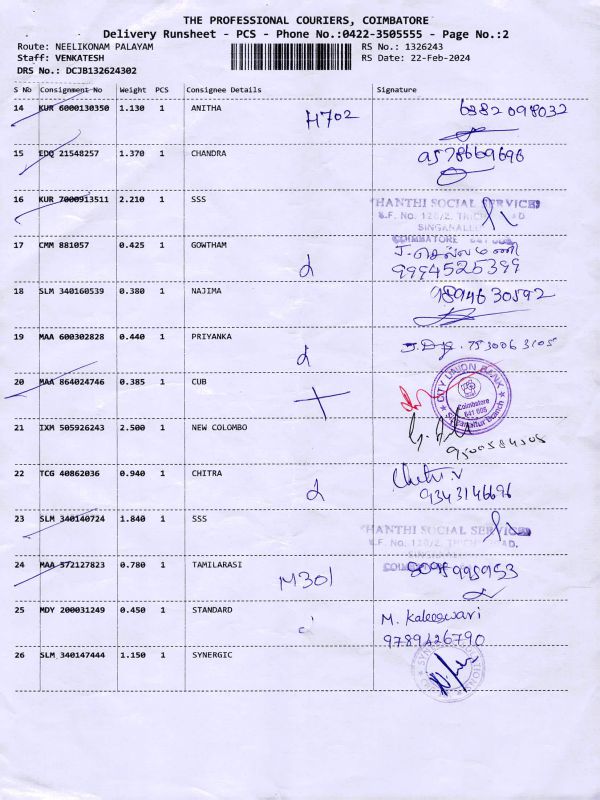 THE PROFESSIONAL COURIERS, COIMBATORE
Delivery Runsheet - PCS - Phone No.:0422-3505555 - Page No.:2
Route: NEELIKONAM PALAYAM RS No.: 1326243
Staff: VENKATESH RS Date: 22-Feb-2024
DRS No.: DCJB132624302
S No Consignment No Weight PCS Consignee Details Signature
14 KUR 6000130350 1.130 1 ANITHA H702 6382098032
15 EDQ 21548257 1.370 1 CHANDRA 9578669696
16 KUR 7000913511 2.210 1 SSS
HANTHI SOCIAL SERVICE
S.F. No. 120/2, TRICH
SINGANALL
COIMBATORE
17 CMM 881057 0.425 1 GOWTHAM J. செல்வமணி
9994525399
18 SLM 340160539 0.380 1 NAJIMA 9894630592
19 MAA 600302828 0.440 1 PRIYANKA 7530063105
20 MAA 864024746 0.385 1 CUB
CITY UNION BANK
Coimbatore
641 005
Singanallur Branch
21 IXM 505926243 2.500 1 NEW COLOMBO
9500584505
22 TCG 40862036 0.940 1 CHITRA Chitra.V
9343146696
23 SLM 340140724 1.840 1 SSS
HANTHI SOCIAL SERVIC
S.F. No. 120/2, TRICH
24 MAA 572127823 0.780 1 TAMILARASI M301 8095995953
25 MDY 200031249 0.450 1 STANDARD M. Kaleeswari
9789426790
26 SLM 340147444 1.150 1 SYNERGIC